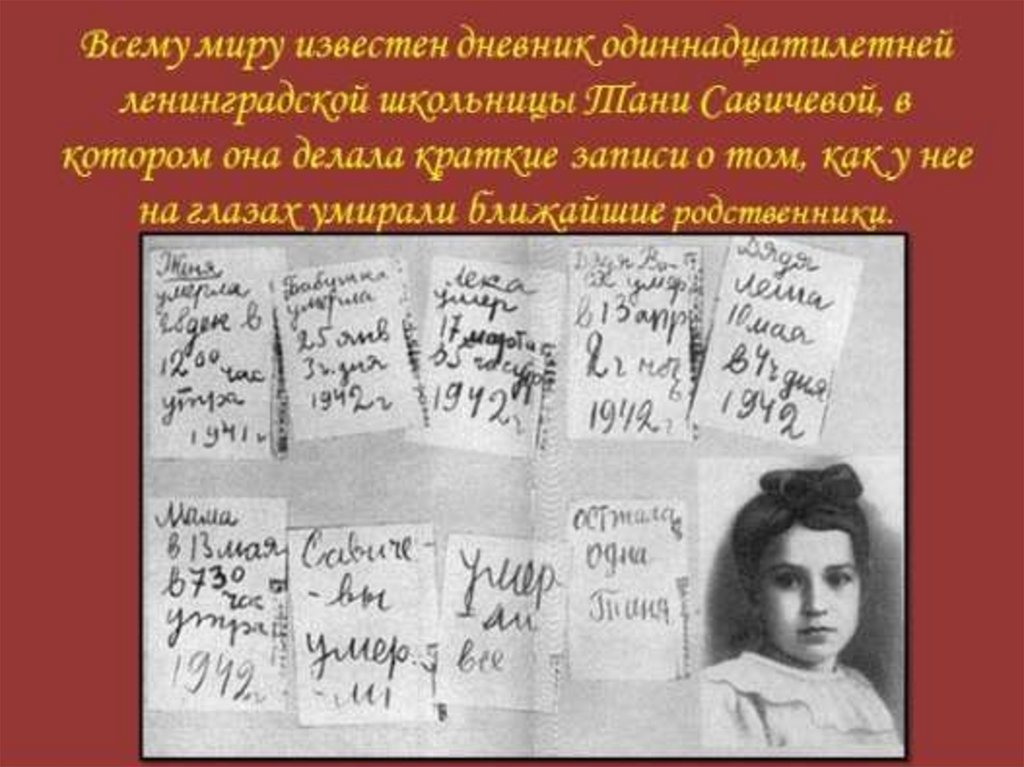 Всему миру известен дневник одиннадцатилетней
ленинградской школьницы Тани Савичевой, в
котором она делала краткие записи о том, как у нее
на глазах умирали ближайшие родственники.
Женя
умерла
28 дек в
12 00 час
утра
1941 г
Бабушка
умерла
25 янв
3 ч. дня
1942 г
Лека
умер
17 марта
в 5 час утр
1942 г
Дядя Ва-
ся умер
в 13 апр
2 ч ночь
1942 г
Дядя
Леша
10 мая
в 4 ч дня
1942
Мама
в 13 мая
в 7 30
час
утра
1942 г
Савиче-
-вы
умер-
-ли
Умер-
-ли
все
Осталась
одна
Таня